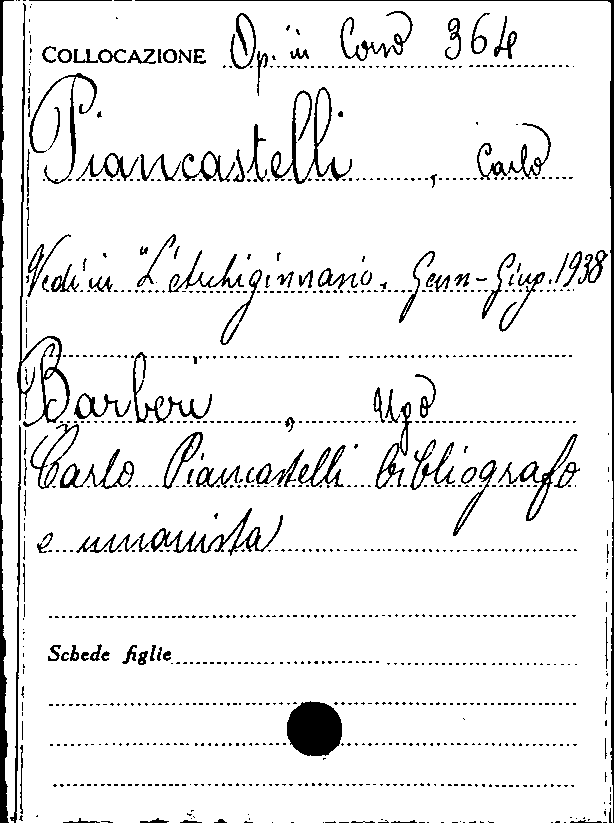 COLLOCAZIONE Op. in Corso 364
Piancastelli, Carlo
Vedi in "L'Archiginnasio. Genn-Giug. 1938
Barberi, Ugo
Carlo Piancastelli bibliografo
e umanista
Schede figlie